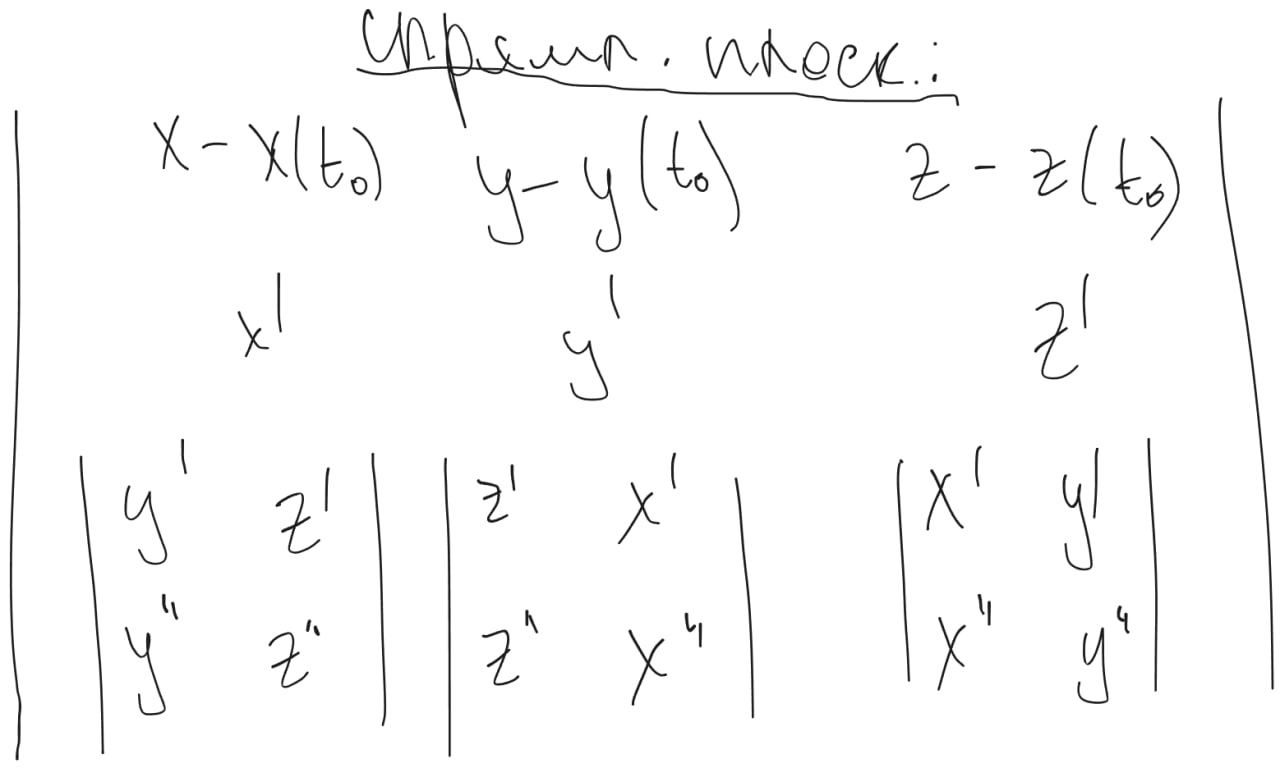 спрямл. плоск.:
x - x(t₀) y - y(t₀) z - z(t₀)
x' y' z'
| y' z' | | z' x' | | x' y' |
| y'' z'' | | z'' x'' | | x'' y'' |